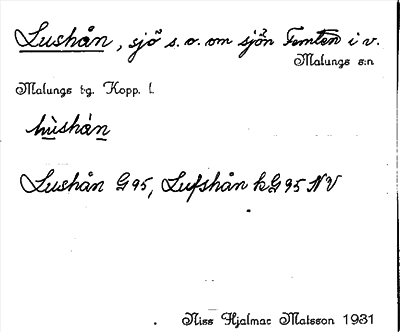 Lushån, sjö s.o. om sjön Femten i v.
Malungs s:n
Malungs tg. Kopp. l.
lu̲shån̲
Lushån G95, Lufshån kG95 NV
Niss Hjalmar Matsson 1931